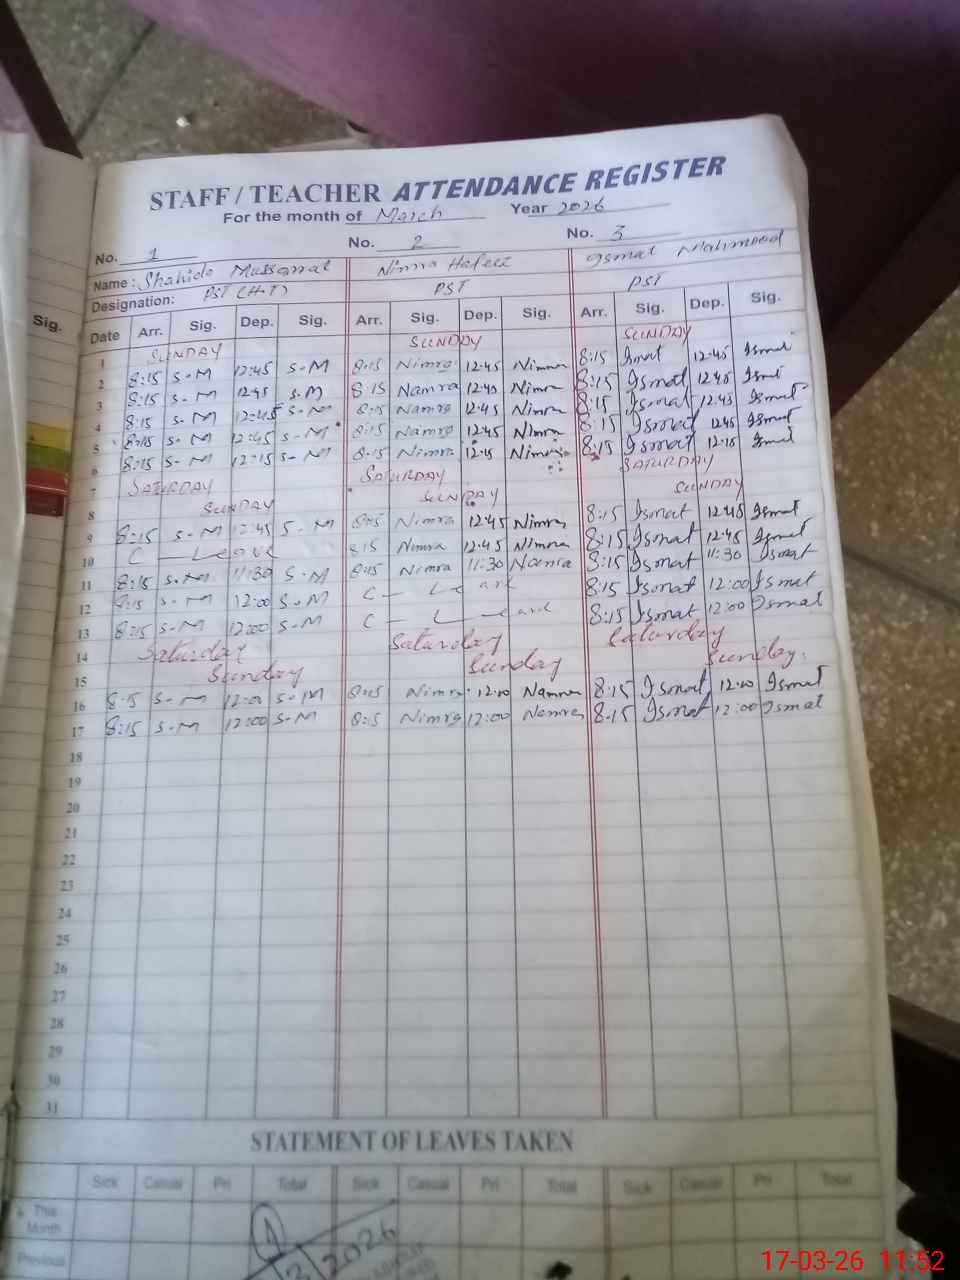 STAFF / TEACHER ATTENDANCE REGISTER
For the month of March Year 2026
No. 1 No. 2 No. 3
Name: Shahida Mussarrat Nimra Hafeez Ismat Mahmood
Designation: PST (H.T) PST PST
Sig.
Date Arr. Sig. Dep. Sig. Arr. Sig. Dep. Sig. Arr. Sig. Dep. Sig.
1 SUNDAY SUNDAY SUNDAY
2 8:15 S-M 12:45 S-M 8:15 Nimra 12:45 Nimra 8:15 Ismat 12:45 Ismat
3 8:15 S-M 12:45 S-M 8:15 Namra 12:45 Nimra 8:15 Ismat 12:45 Ismat
4 8:15 S-M 12:45 S-M 8:15 Namra 12:45 Nimra 8:15 Ismat 12:45 Ismat
5 8:15 S-M 12:45 S-M 8:15 Namra 12:45 Nimra 8:15 Ismat 12:45 Ismat
6 8:15 S-M 12:15 S-M 8:15 Nimra 12:15 Nimra 8:15 Ismat 12:15 Ismat
7 SATURDAY SATURDAY SATURDAY
8 SUNDAY SUNDAY SUNDAY
9 8:15 S-M 12:45 S-M 8:15 Nimra 12:45 Nimra 8:15 Ismat 12:45 Ismat
10 C - Leave 8:15 Nimra 12:45 Nimra 8:15 Ismat 12:45 Ismat
11 8:15 S-M 11:30 S-M 8:15 Nimra 11:30 Namra 8:15 Ismat 11:30 Ismat
12 8:15 S-M 12:00 S-M C - 8:15 Ismat 12:00 Ismat
13 8:15 S-M 12:00 S-M C - 8:15 Ismat 12:00 Ismat
14 Saturday Saturday Saturday
15 Sunday Sunday Sunday
16 8:15 S-M 12:00 S-M 8:15 Nimra 12:00 Namra 8:15 Ismat 12:00 Ismat
17 8:15 S-M 12:00 S-M 8:15 Nimra 12:00 Namra 8:15 Ismat 12:00 Ismat
18
19
20
21
22
23
24
25
26
27
28
29
30
31
STATEMENT OF LEAVES TAKEN
Sick Casual Pri Total Sick Casual Pri Total Sick Casual Pri Total
This Month
Previous
3 2026
17-03-26 11:52